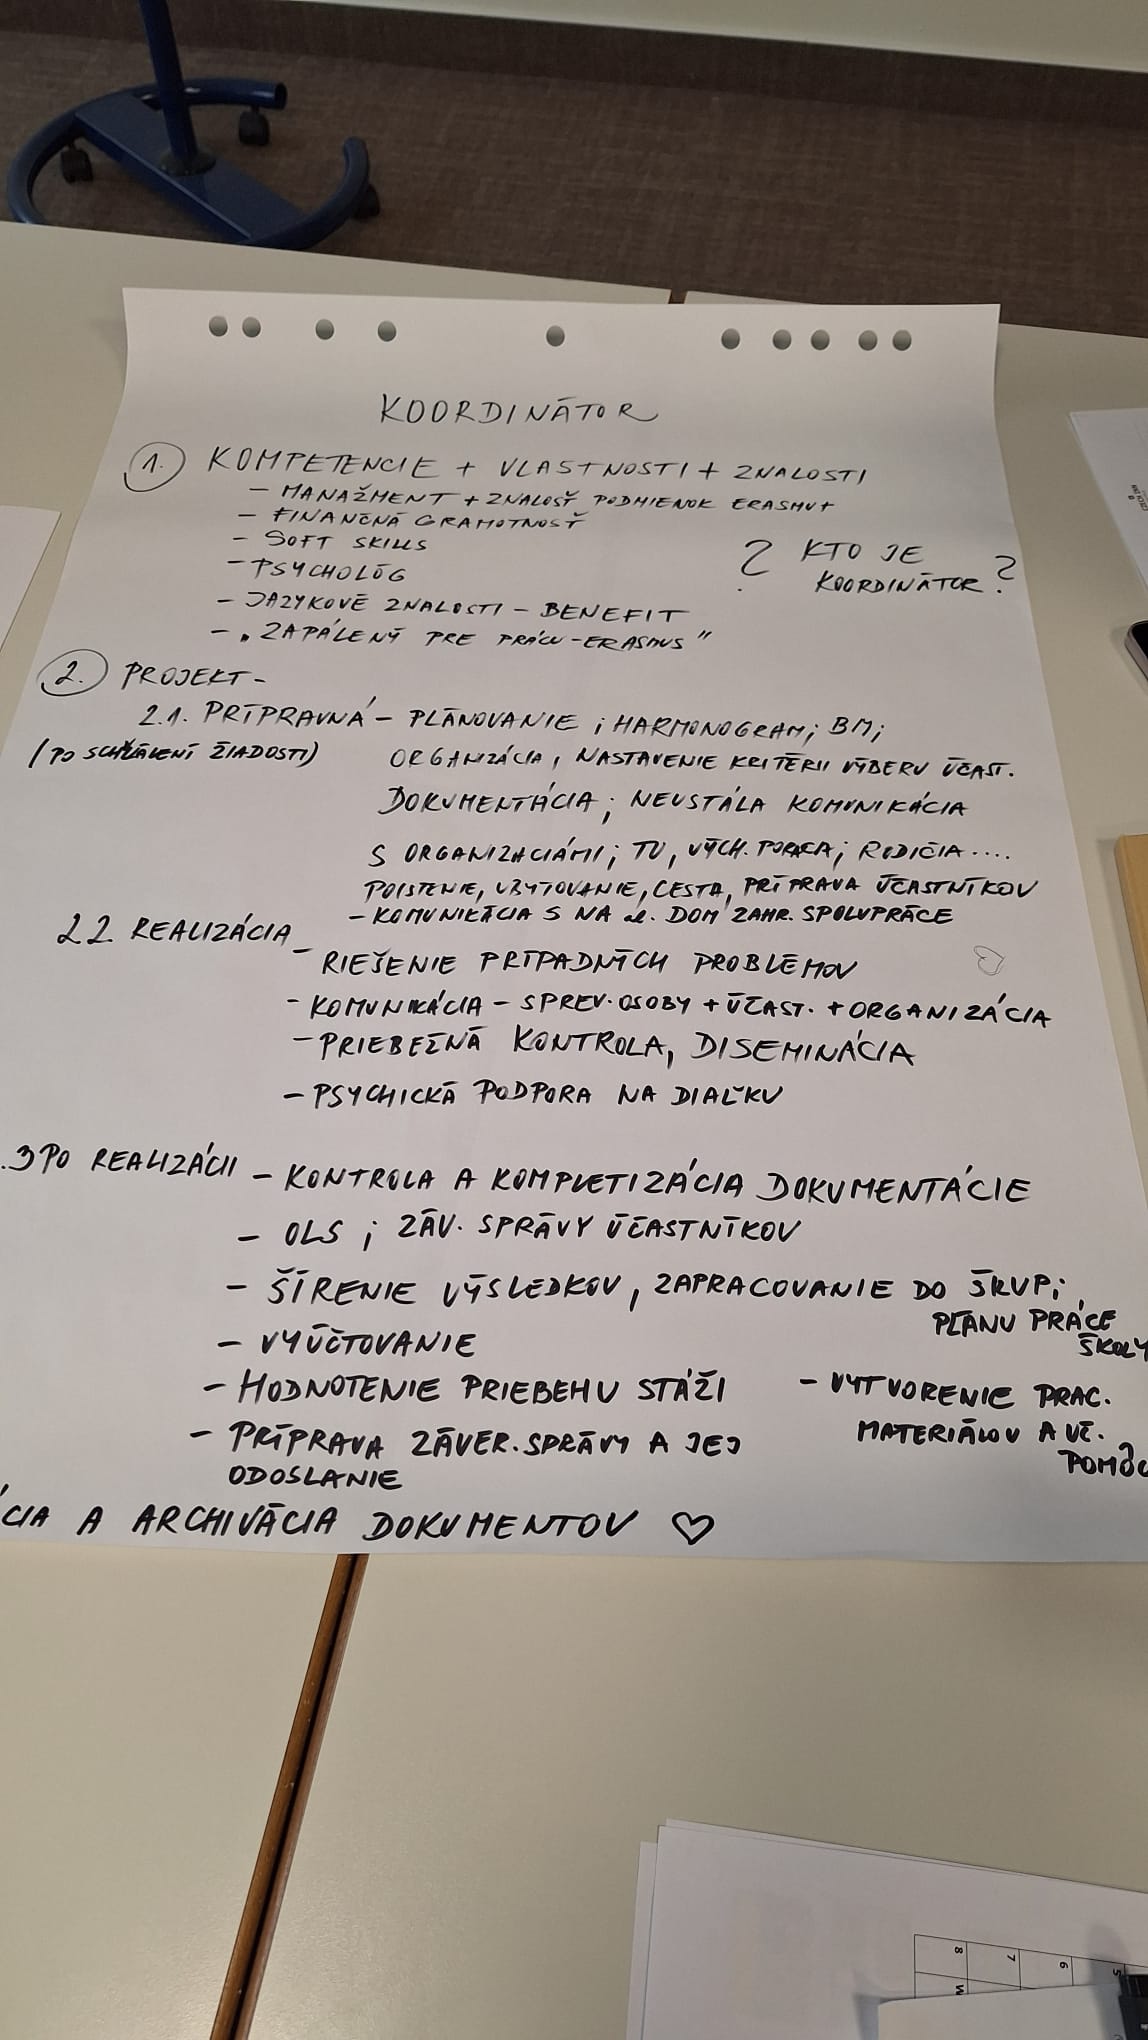 KOORDINÁTOR
1. KOMPETENCIE + VLASTNOSTI + ZNALOSTI
- MANAŽMENT + ZNALOSŤ PODMIENOK ERASMU+
- FINANČNÁ GRAMOTNOSŤ
- SOFT SKILLS
- PSYCHOLÓG
- JAZYKOVÉ ZNALOSTI - BENEFIT
- „ZAPÁLENÝ PRE PRÁCU - ERASMUS"
? KTO JE
KOORDINÁTOR. ?
2. PROJEKT -
2.1. PRÍPRAVNÁ - PLÁNOVANIE ; HARMONOGRAM; BM;
(PO SCHVÁLENÍ ŽIADOSTI)
ORGANIZÁCIA, NASTAVENIE KRITÉRIÍ VÝBERU ÚČAST.
DOKUMENTÁCIA; NEUSTÁLA KOMUNIKÁCIA
S ORGANIZÁCIÁMI; TU, VÝCH. PORADCA; RODIČIA ....
POISTENIE, UBYTOVANIE, CESTA, PRÍPRAVA ÚČASTNÍKOV
- KOMUNIKÁCIA S NA DOM ZAHR. SPOLUPRÁCE
2.2. REALIZÁCIA
- RIEŠENIE PRÍPADNÝCH PROBLÉMOV
- KOMUNIKÁCIA - SPREV. OSOBY + ÚČAST. + ORGANIZÁCIA
- PRIEBEŽNÁ KONTROLA, DISEMINÁCIA
- PSYCHICKÁ PODPORA NA DIAĽKU
.3 PO REALIZÁCII - KONTROLA A KOMPLETIZÁCIA DOKUMENTÁCIE
- OLS ; ZÁV. SPRÁVY ÚČASTNÍKOV
- ŠÍRENIE VÝSLEDKOV, ZAPRACOVANIE DO ŠKVP;
PLÁNU PRÁCE
ŠKOLY
- VYÚČTOVANIE
- HODNOTENIE PRIEBEHU STÁŽI
- PRÍPRAVA ZÁVER. SPRÁVY A JEJ
ODOSLANIE
- VYTVORENIE PRAC.
MATERIÁLOV A UČ.
POMÔC
CIA A ARCHIVÁCIA DOKUMENTOV ♡
8 7 6 5